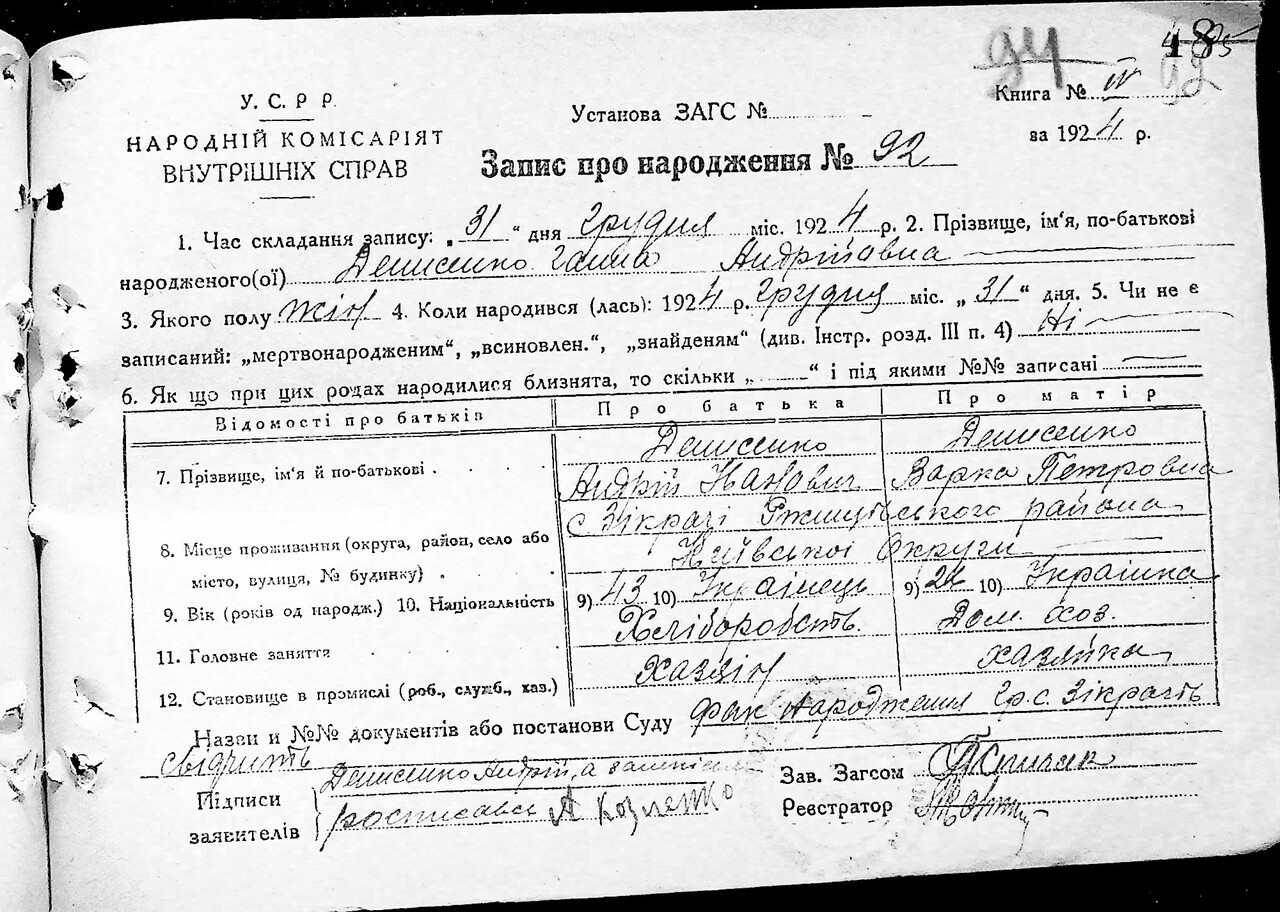 94 48
92
У. С. Р Р.
НАРОДНІЙ КОМІСАРІЯТ
ВНУТРІШНІХ СПРАВ
Установа ЗАГС №
Книга № IV
за 1924 р.
Запис про народження № 92
1. Час складання запису: „31“ дня Грудня міс. 1924 р. 2. Прізвище, ім'я, по-батькові
народженого(ої) Денисенко Ганна Андріївна
3. Якого полу жін 4. Коли народився (лась): 1924 р. Грудня міс. „31“ дня. 5. Чи не є
записаний: „мертвонародженим“, „всиновлен.“, „знайденям“ (див. Інстр. розд. III п. 4) Ні
6. Як що при цих родах народилися близнята, то скільки „ “ і під якими №№ записані
Відомості про батьків Про батька Про матір
7. Прізвище, ім'я й по-батькові Денисенко Денисенко
Андрій Іванович Варка Петровна
с Зікрачі Ржищівського района
8. Місце проживання (округа, район, село або Київської Округи
місто, вулиця, № будинку)
9. Вік (років од народж.) 10. Національність 9) 43 10) Українець 9) 10) Українка
11. Головне заняття Хліборобств. Дом. хоз.
12. Становище в промислі (роб., служб., хаз.) хазяін хазяйка
Назви и №№ документів або постанови Суду Фак Народження гр. с. Зікрачів
свідчить
Підписи Денисенко Андрій, а
заявителів росписавсь А Козленко
Зав. Загсом
Реєстратор